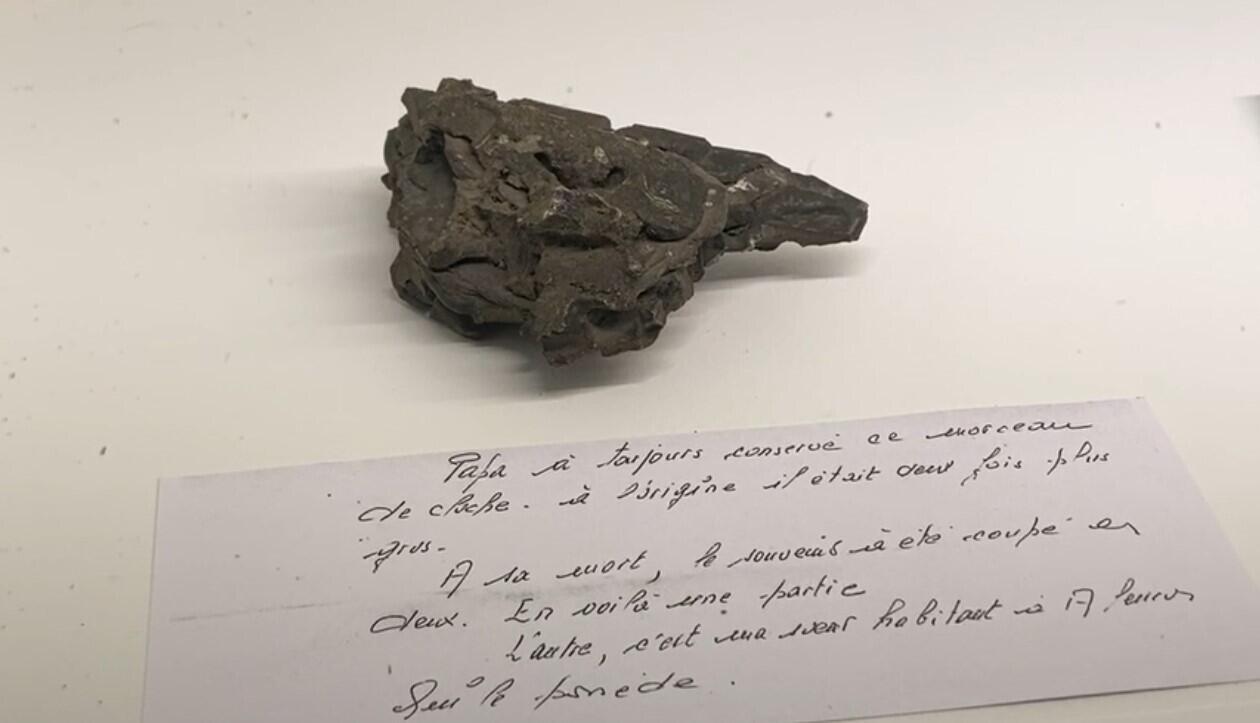 Papa à toujours conservé ce morceau
de cloche. à l'origine il était deux fois plus
gros.
A sa mort, le souvenir à été coupé en
deux. En voilà une partie
L'autre, c'est ma soeur habitant à
qui le possède.